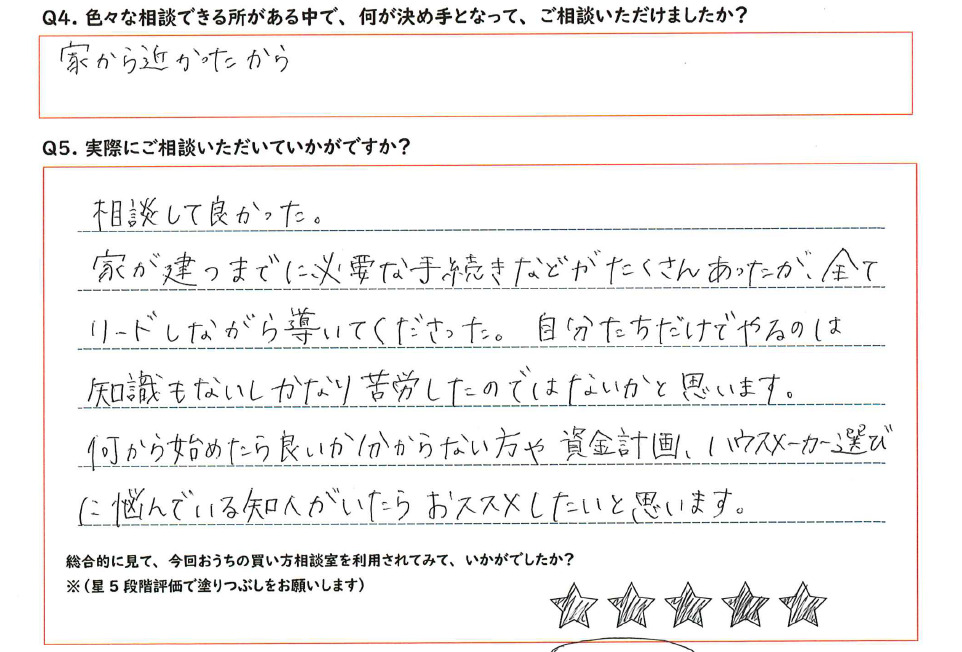 Q4. 色々な相談できる所がある中で、何が決め手となって、ご相談いただけましたか？
家から近かったから
Q5. 実際にご相談いただいていかがですか？
相談して良かった。
家が建つまでに必要な手続きなどがたくさんあったが、全て
リードしながら導いてくださった。 自分たちだけでやるのは
知識もないしかなり苦労したのではないかと思います。
何から始めたら良いか分からない方や 資金計画、ハウスメーカー選び
に悩んでいる知人がいたらおススメしたいと思います。
総合的に見て、今回おうちの買い方相談室を利用されてみて、いかがでしたか？
※（星5段階評価で塗りつぶしをお願いします）